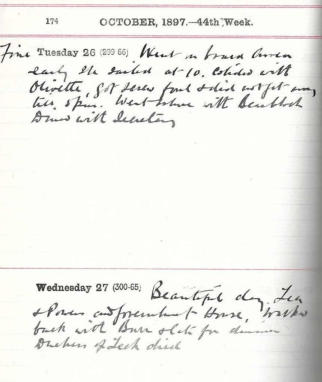 174 OCTOBER, 1897.—44th Week.
Fine Tuesday 26 (299-66) Went on board
early She sailed at 10. Collided with
Olivette, got screw foul & did not get away
till 5 p.m. Went with
Dined with Secretary
Wednesday 27 (300-65) Beautiful day. Tea
& Government House, Walked
back with late for dinner
Duchess of Teck died